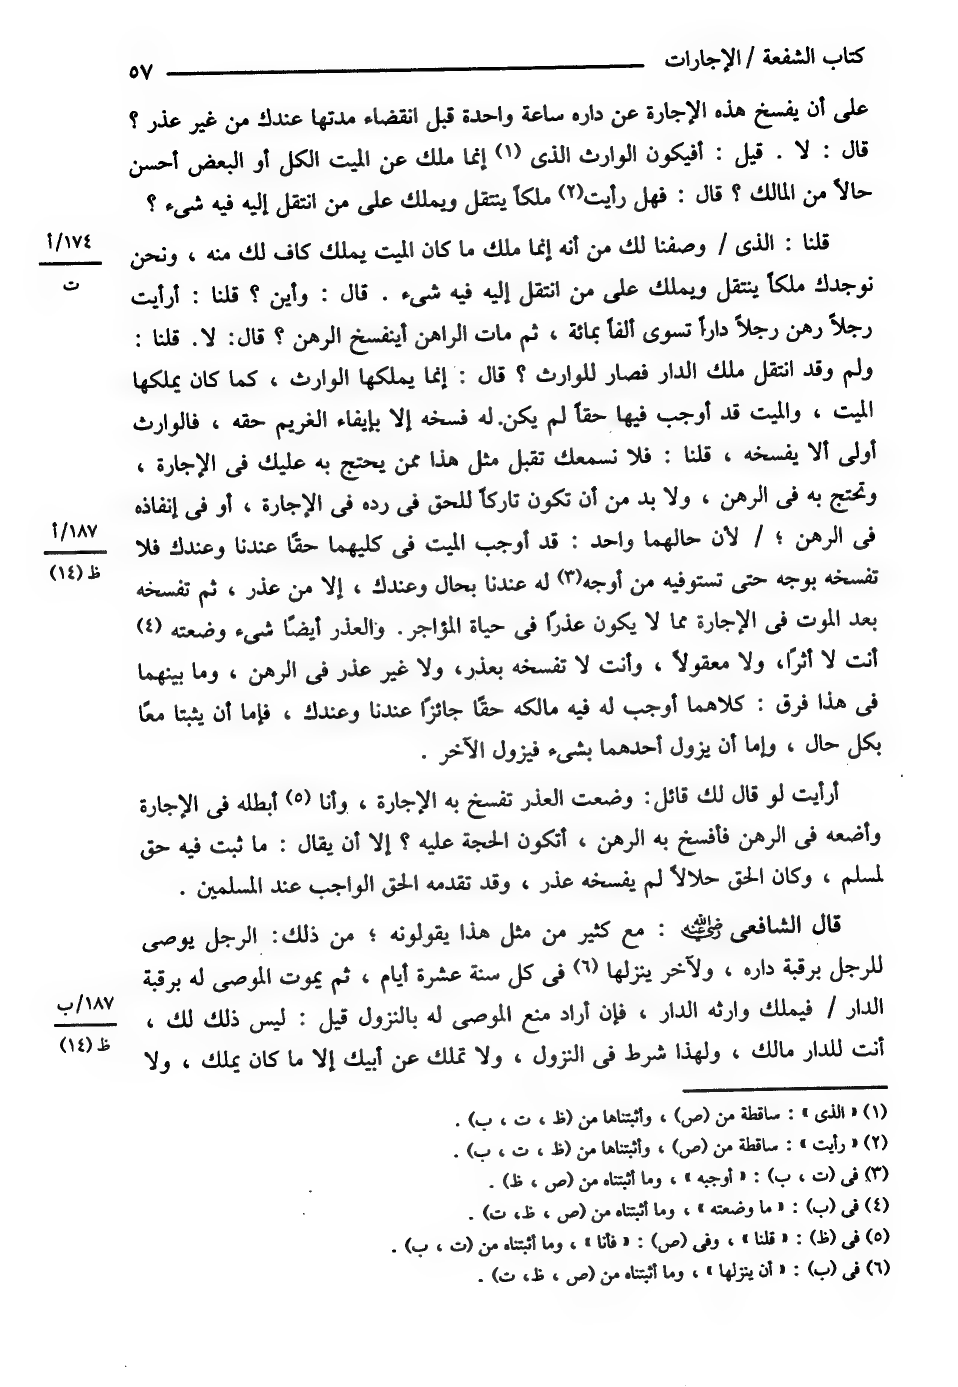 كتاب الشفعة / الإجارات ٥٧
على أن يفسخ هذه الإجارة عن داره ساعة واحدة قبل انقضاء مدتها عندك من غير عذر ؟
قال : لا . قيل : أفيكون الوارث الذى (١) إنما ملك عن الميت الكل أو البعض أحسن
حالاً من المالك ؟ قال : فهل رأيت(٢) ملكاً ينتقل ويملك على من انتقل إليه فيه شىء ؟
قلنا : الذى / وصفنا لك من أنه إنما ملك ما كان الميت يملك كاف لك منه ، ونحن
١٧٤/أ
ت
نوجدك ملكاً ينتقل ويملك على من انتقل إليه فيه شىء . قال : وأين ؟ قلنا : أرأيت
رجلاً رهن رجلاً داراً تسوى ألفاً بمائة ، ثم مات الراهن أينفسخ الرهن ؟ قال: لا. قلنا :
ولم وقد انتقل ملك الدار فصار للوارث ؟ قال : إنما يملكها الوارث ، كما كان يملكها
الميت ، والميت قد أوجب فيها حقاً لم يكن له فسخه إلا بإيفاء الغريم حقه ، فالوارث
أولى ألا يفسخه ، قلنا : فلا نسمعك تقبل مثل هذا ممن يحتج به عليك فى الإجارة ،
وتحتج به فى الرهن ، ولا بد من أن تكون تاركاً للحق فى رده فى الإجارة ، أو فى إنفاذه
فى الرهن ؛ / لأن حالهما واحد : قد أوجب الميت فى كليهما حقًا عندنا وعندك فلا
١٨٧/أ
ظ (١٤)
تفسخه بوجه حتى تستوفيه من أوجه(٣) له عندنا بحال وعندك ، إلا من عذر ، ثم تفسخه
بعد الموت فى الإجارة مما لا يكون عذرًا فى حياة المؤاجر. والعذر أيضًا شىء وضعته (٤)
أنت لا أثرًا، ولا معقولاً ، وأنت لا تفسخه بعذر، ولا غير عذر فى الرهن ، وما بينهما
فى هذا فرق : كلاهما أوجب له فيه مالكه حقًا جائزًا عندنا وعندك ، فإما أن يثبتا معًا
بكل حال ، وإما أن يزول أحدهما بشىء فيزول الآخر .
أرأيت لو قال لك قائل: وضعت العذر تفسخ به الإجارة ، وأنا (٥) أبطله فى الإجارة
وأضعه فى الرهن فأفسخ به الرهن ، أتكون الحجة عليه ؟ إلا أن يقال : ما ثبت فيه حق
لمسلم ، وكان الحق حلالاً لم يفسخه عذر ، وقد تقدمه الحق الواجب عند المسلمين .
قال الشافعى رضي الله عنه : مع كثير من مثل هذا يقولونه ؛ من ذلك: الرجل يوصى
للرجل برقبة داره ، ولآخر ينزلها (٦) فى كل سنة عشرة أيام ، ثم يموت الموصى له برقبة
الدار / فيملك وارثه الدار ، فإن أراد منع الموصى له بالنزول قيل : ليس ذلك لك ،
١٨٧/ب
ظ (١٤)
أنت للدار مالك ، ولهذا شرط فى النزول ، ولا تملك عن أبيك إلا ما كان يملك ، ولا
(١) « الذى » : ساقطة من (ص) ، وأثبتناها من (ظ ، ت ، ب) .
(٢) « رأيت » : ساقطة من (ص) ، وأثبتناها من (ظ ، ت ، ب) .
(٣) فى (ت ، ب) : « أوجبه » ، وما أثبتناه من (ص ، ظ) .
(٤) فى (ب) : « ما وضعته » ، وما أثبتناه من (ص ، ظ، ت) .
(٥) فى (ظ) : « قلنا » ، وفى (ص) : « فأنا » ، وما أثبتناه من (ت ، ب) .
(٦) فى (ب) : « أن ينزلها » ، وما أثبتناه من (ص ، ظ، ت) .